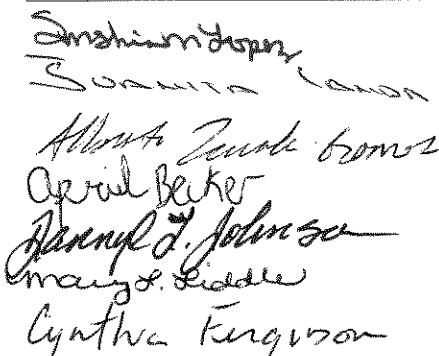 Lopez
Juanita
Alberto
April Becker
Darryl L. Johnson
Mary L. Liddle
Cynthia Ferguson